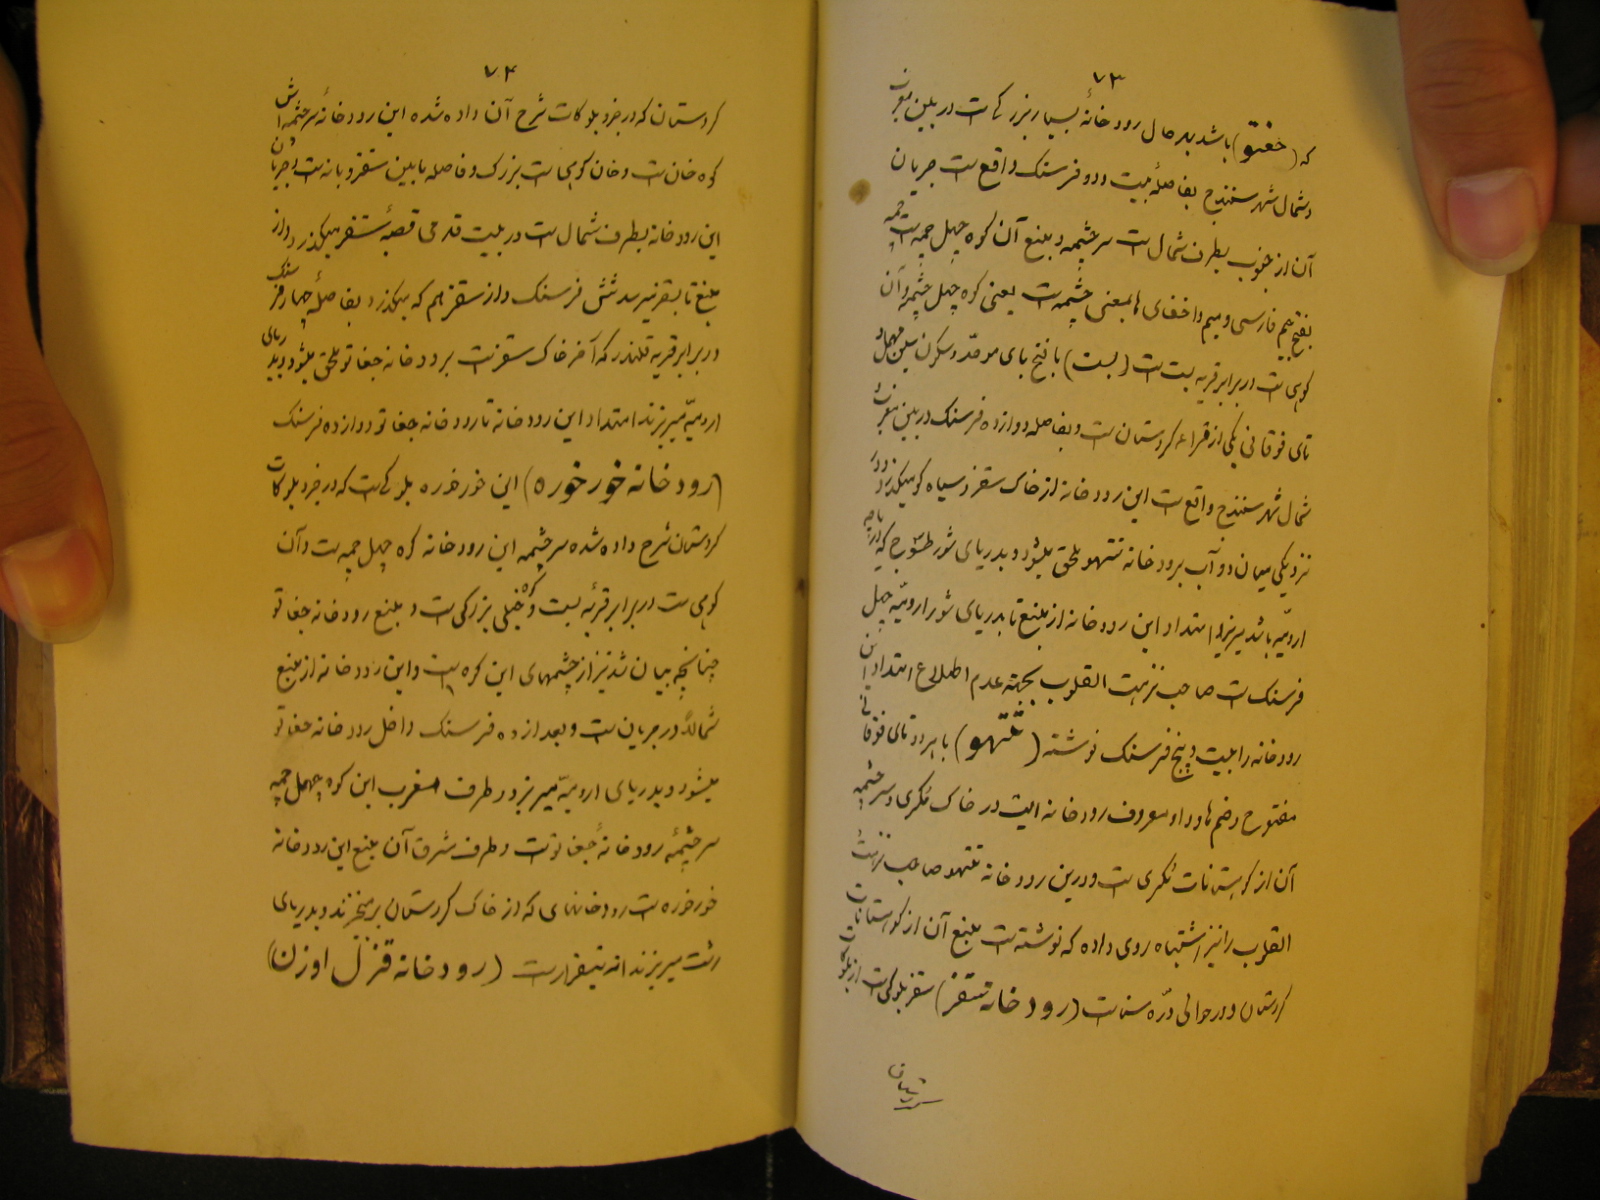 ۷۳
که (جغتو) باشد بهر حال رودخانهٔ بسیار بزرکی است در بین مغرب
و شمال شهر سنندج بفاصلهٔ بیست و دو فرسنک واقع است جریان
آن از جنوب بطرف شمال است سرچشمه و منبع آن کوه چهل چمه است چمه
بفتح جیم فارسی و میم و اخفای ها بمعنی چشمه است یعنی کوه چهل چشمه و آن
کوهی است در برابر قریه بست است (بست) با فتح بای موحّد و سکون سین مهمله و
تای فوقانی یکی از قراء کردستان است و بفاصله دوازده فرسنک در بین مغرب و
شمال شهر سنندج واقع است این رودخانه از خاک سقز و سیاه کوه میکذرد و در
نزدیکی میان دو آب برودخانه تتهو ملحق میشود و بدریای شور طسّوج که دریاچه
ارومیّه باشد میریزد امتداد این رودخانه از منبع تا بدریای شور ارومیّه چهل
فرسنک است صاحب نزهت القلوب بجهته عدم اطلاع امتداد این
رودخانه را بیست و پنج فرسنک نوشته (تتهو) با هر دو تای فوقانی
مفتوح و ضم ها و واو معروف رودخانه ایست در خاک مُکری و سرچشمه
آن از کوهستانات مُکری است و درین رودخانه تتهو صاحب نزهت
القلوب را نیز اشتباه روی داده که نوشته است منبع آن از کوهستانات
کردستان و در حوالی درّه سنا است (رودخانه سقز) سقز بلوکی است از بلوکات
کردستان
۷۴
کردستان که در جزو بلوکات شرح آن داده شده این رودخانهٔ سرچشمه اش
کوه خان است و خان کوهی است بزرک و فاصله مابین سقز و بانه است و جریان
این رودخانه بطرف شمال است در بیست قدمی قصبهٔ سقز میکذرد و از
منبع تا بسقز نیز سه شش فرسنک و از سقز هم که میکذرد بفاصلهٔ چهار فرسنک
در برابر قریه قلندر که آخر خاک سقز است برودخانه جغاتو ملحق میشود و بدریای
ارومیّه میریزند امتداد این رودخانه تا رودخانه جغاتو دوازده فرسنک
(رودخانه خورخوره) این خورخوره بلوکی است که در جزو بلوکات
کردستان شرح داده شده سرچشمه این رودخانه کوه چهل چمه است و آن
کوهی است در برابر قریه بست و کوه خیلی بزرکی است و منبع رودخانه جغاتو
چنانچه بیان شد نیز از چشمهای این کوه است و این رودخانه از منبع
شمالاً در جریان است و بعد از ده فرسنک داخل رودخانه جغاتو
میشود و بدریای ارومیّه میریزد در طرف مغرب این کوه چهل چمه
سرچشمهٔ رودخانهٔ جغاتو است و طرف شرق آن منبع این رودخانه
خورخوره است رودخانهای که از خاک کردستان برمیخیزند و بدریای
رشت میریزند از اینقرار است (رودخانه قزل اوزن)